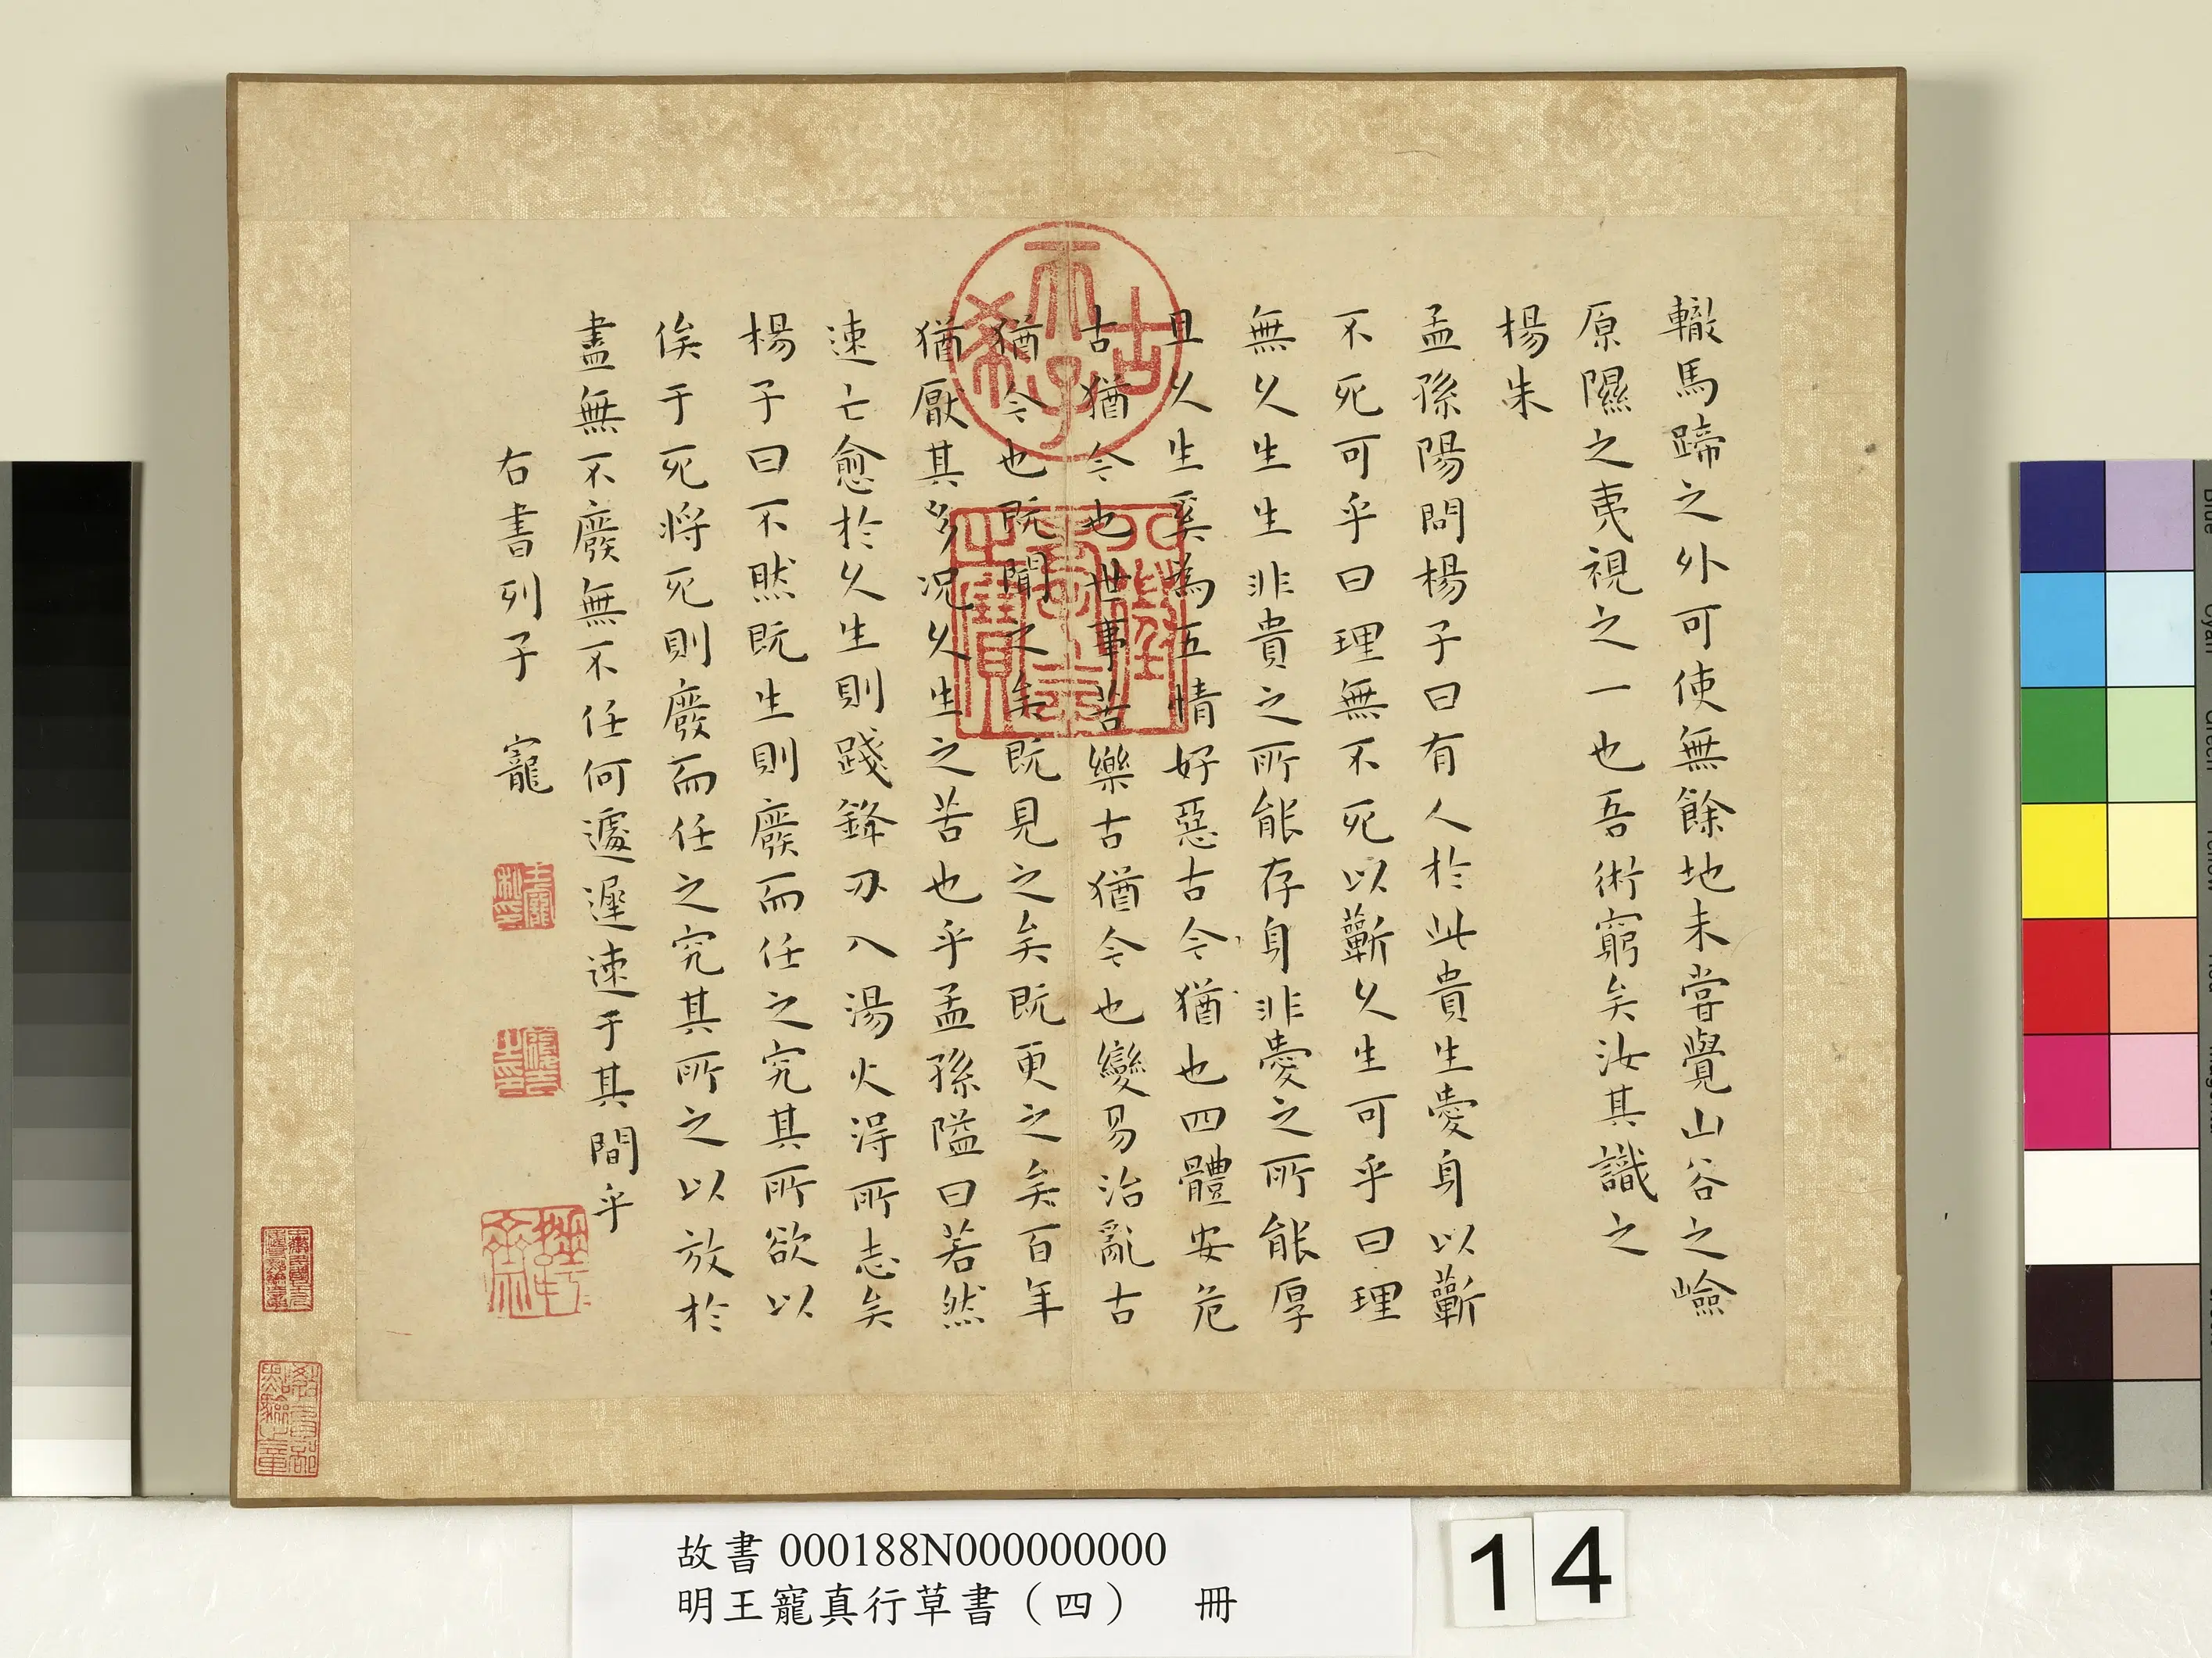 轍馬蹄之外可使無餘地未甞覺山谷之嶮
原隰之夷視之一也吾術窮矣汝其識之
楊朱
孟孫陽問楊子曰有人於此貴生愛身以蘄
不死可乎曰理無不死以蘄久生可乎曰理
無久生生非貴之所能存身非愛之所能厚
且久生奚為五情好惡古今猶也四體安危
古猶今也世事苦樂古猶今也變易治亂古
猶今也既聞之矣既見之矣既更之矣百年
猶厭其多況久生之苦也乎孟孫隘曰若然
速亡愈於久生則踐鋒刃入湯火得所志矣
楊子曰不然既生則廢而任之究其所欲以
俟于死將死則廢而任之究其所之以放於
盡無不廢無不任何遽遲速于其間乎
右書列子 寵
古稀天子
八徵耄念之寶
王寵私印
履吉之印
教育部點驗之章
故書 000188N000000000
明王寵真行草書（四） 冊
14